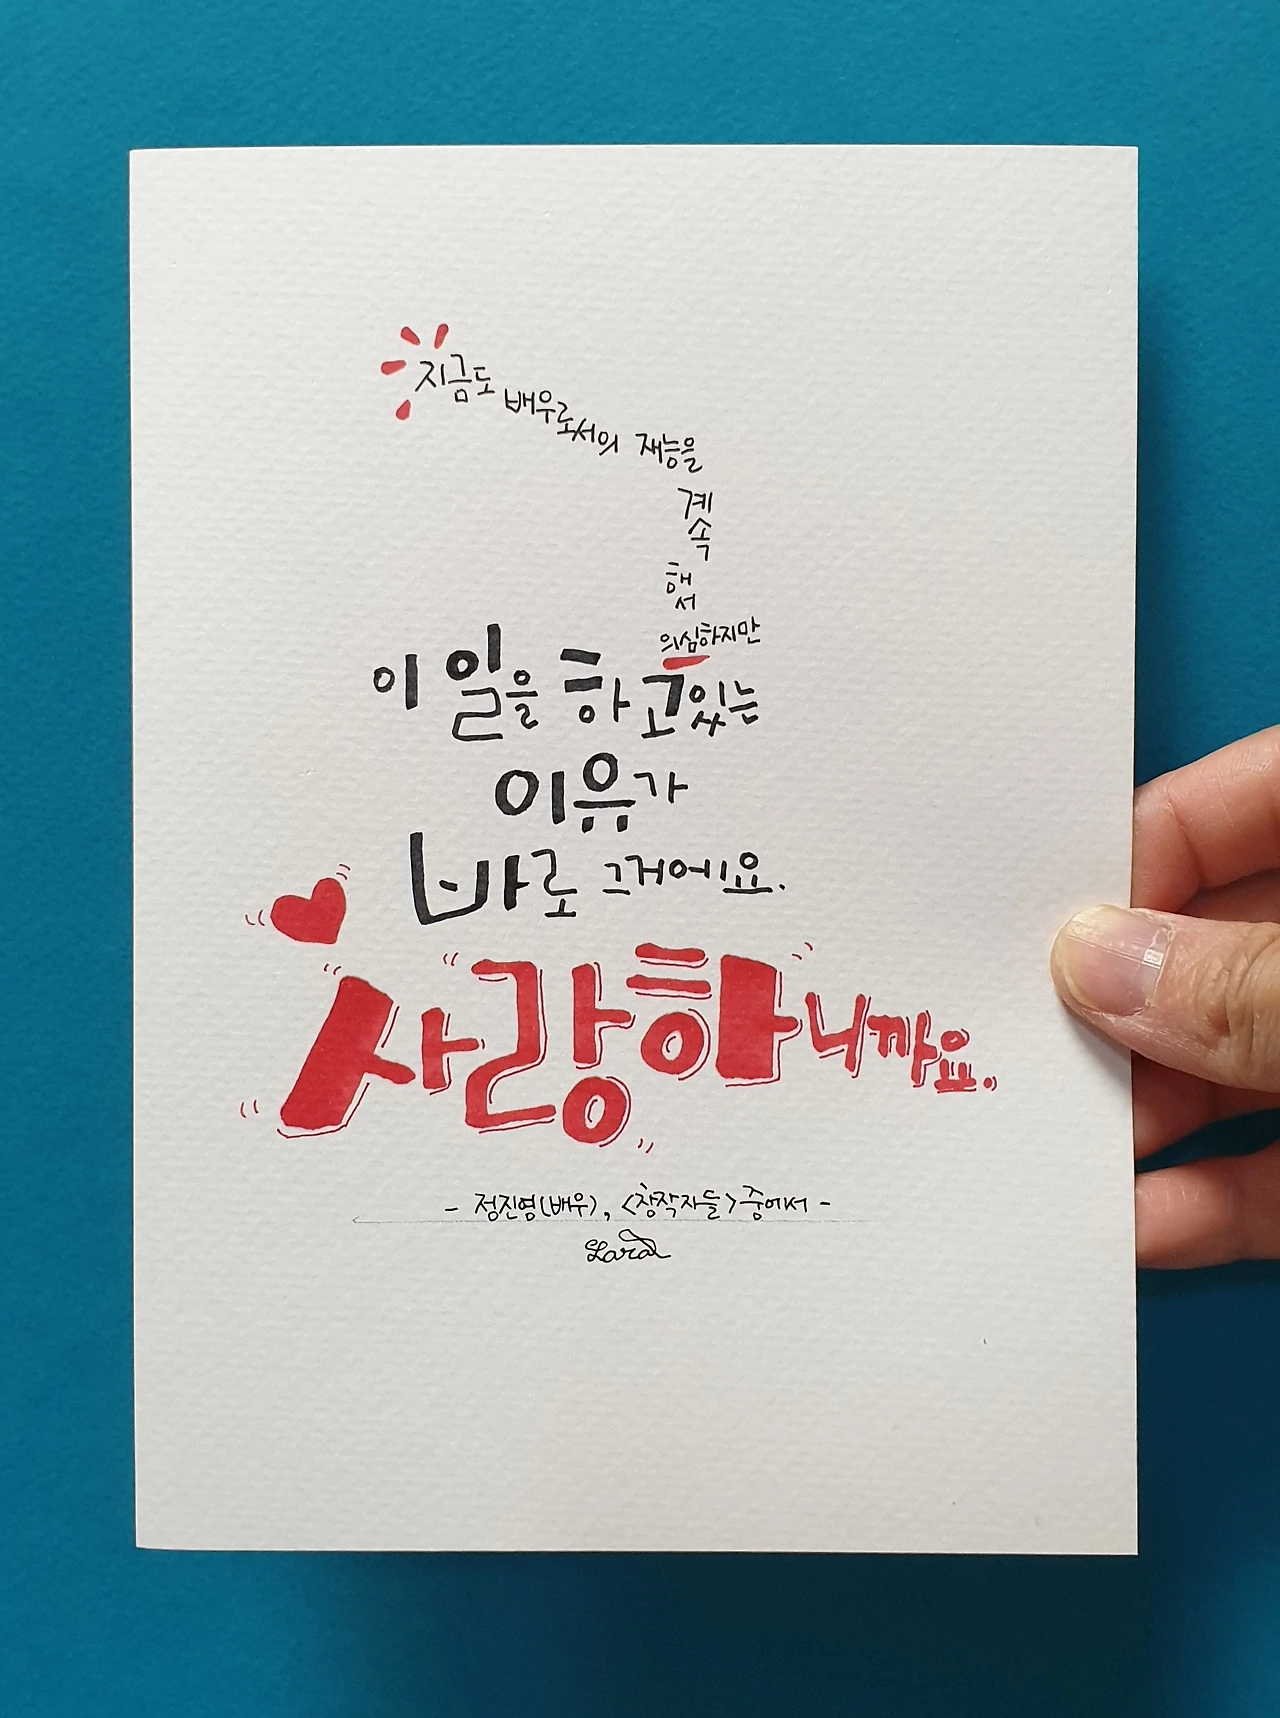 지금도 배우로서의 재능을
계속
해서
의심하지만
이 일을 하고있는
이유가
바로 그거에요.
사랑하니까요.
- 정진영(배우), <창작자들> 중에서 -
Lara